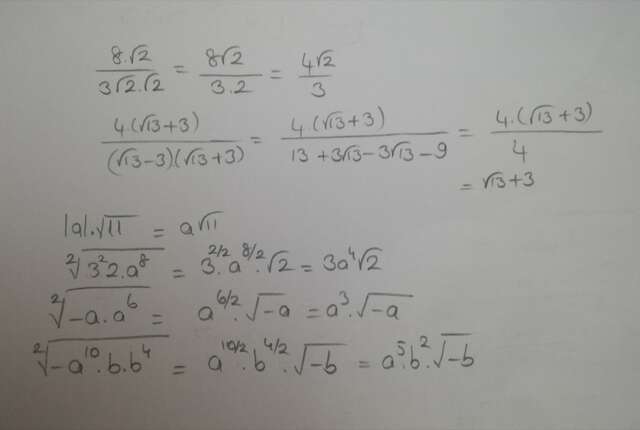 8.√2/3√2.√2 = 8√2/3.2 = 4√2/3
4.(√13+3)/(√13-3)(√13+3) = 4.(√13+3)/13+3√13-3√13-9 = 4.(√13+3)/4
= √13+3
|a|.√11 = a√11
²√3²2.a⁸ = 3^2/2.a^8/2.√2 = 3a⁴√2
²√-a.a⁶ = a^6/2.√-a = a³.√-a
²√-a¹⁰.b.b⁴ = a^10/2.b^4/2.√-b = a⁵.b².√-b